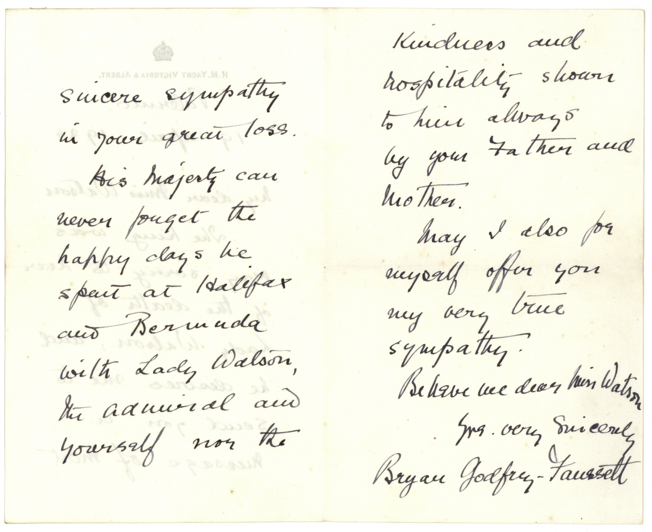 sincere sympathy
in your great loss.
His Majesty can
never forget the
happy days he
spent at Halifax
and Bermuda
with Lady Watson,
the admiral and
yourself nor the
Kindness and
hospitality shown
to him always
by your Father and
Mother.
May I also for
myself offer you
my very true
sympathy.
Believe me dear Miss Watson
Yrs. very Sincerely
Bryan Godfrey-Faussett
H.M. YACHT VICTORIA & ALBERT.